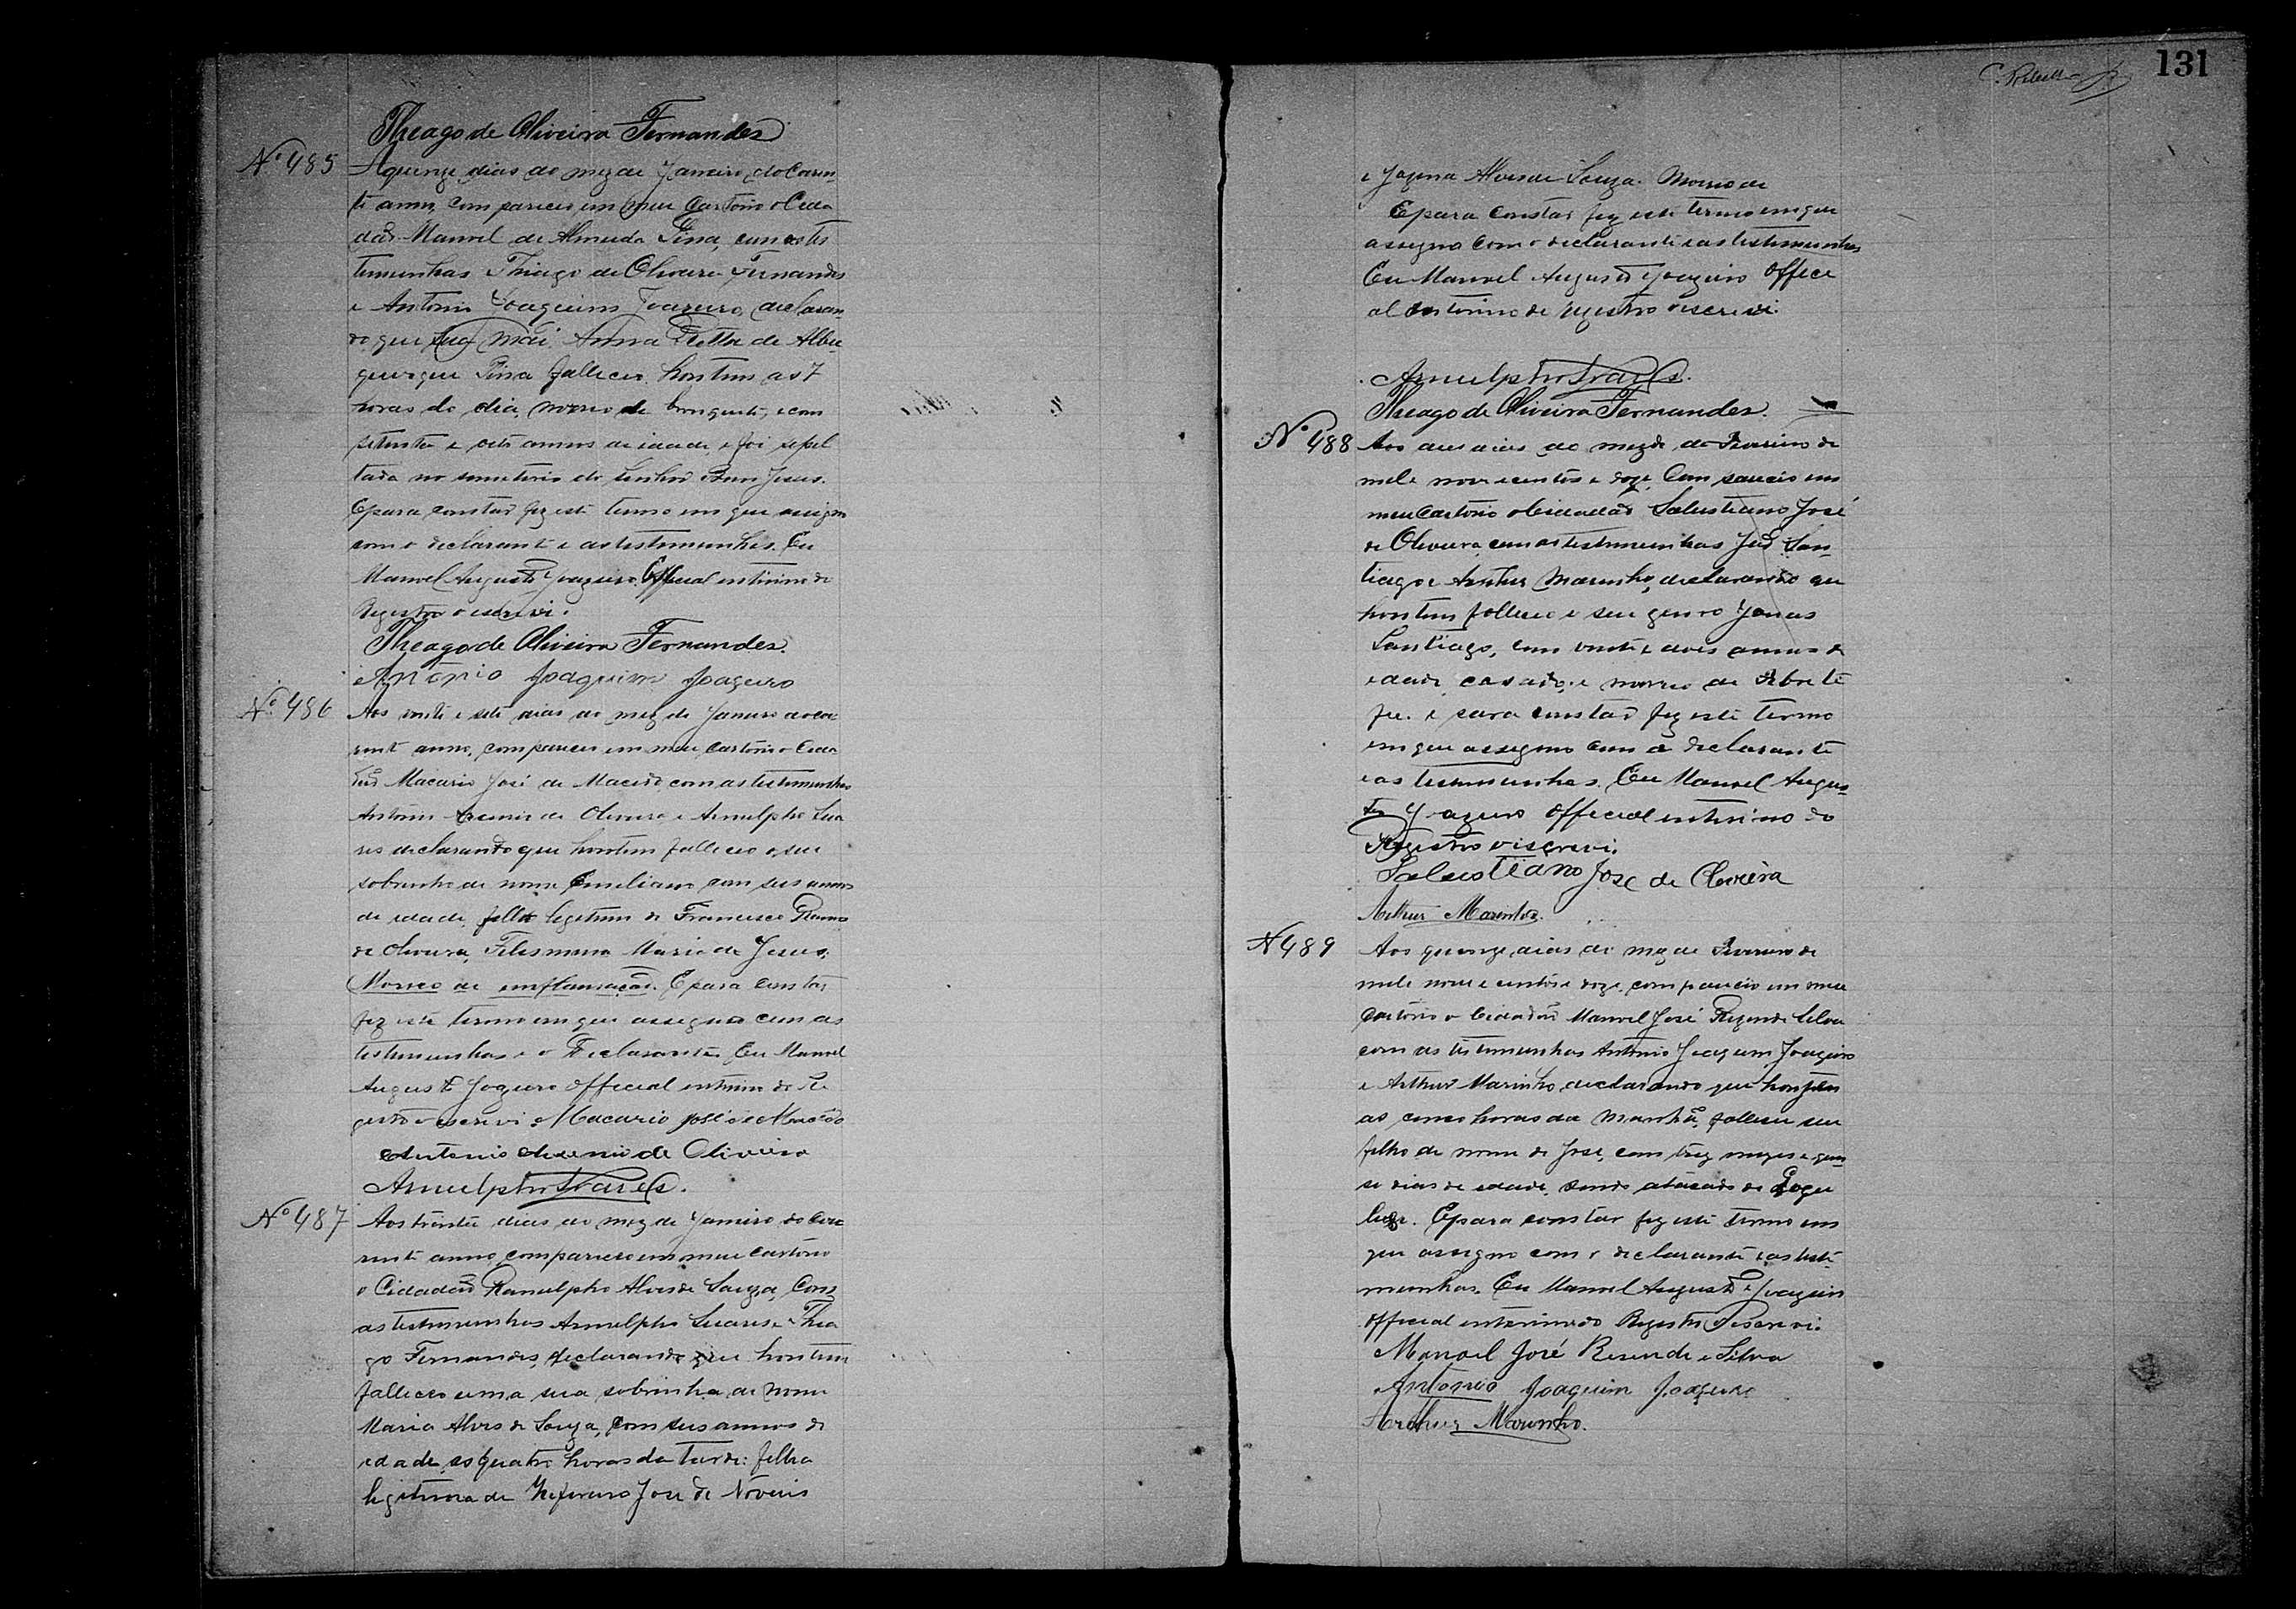 131
Theago de Oliveira Fernandes
Nº 485 Aquinze dias do mez de Janeiro do Corren-
te anno, compareceu em meu Cartorio o Cida
dão Manoel de Almeida Pina, com as tes
temunhas Thiago de Oliveira Fernandes
e Antonio Joaquim Joazeiro, declaran-
do que sua mãi Anna de Albu
querque Pina falleceu hontem as 7
horas do dia morreo de bronquite, e com
setenta e oito annos de idade, e foi sepul
tada no semeterio do Senhor Bom Jesus.
E para constar fiz este termo em que assigno
com o declarante e as testemunhas. Eu
Manoel Augusto Joazeiro Official interino do
Registro o escrevi.
Theago de Oliveira Fernandes.
Antonio Joaquim Joazeiro
Nº 486 Aos vinte e sete dias do mez de Janeiro do cor
rente anno, compareceu em meu Cartorio o Cida
dão Macario José de Macedo com as testemunhas
Antonio de Oliveira e Arnulpho Sua
res declarando que hontem falleceo o seu
sobrinho de nome Emiliano com seis annos
de idade, filho legitimo de Francisco
de Oliveira, Felismina Maria de Jesus.
Morreo de emflamação. E para constar
fiz este termo em que assegno com as
testemunhas e o Declarante. Eu Manoel
Augusto Joazeiro official interino do Re
gistro o escrevi Macario José de Macêdo
Antonio de Oliveira
Arnulpho Soares.
Nº 487 Aos trinta dias do mez de Janeiro do Cor
rente anno compareceo em meu Cartorio
o Cidadão Ranulpho Alves de Souza, Com
as testemunhas Arnulpho Suares e Thea
go Fernandes, declarando que hontem
falleceo uma sua sobrinha de nome
Maria Alves de Souza, com seis annos de
edade, as quatro horas da tarde: filha
legitima de José de Novais
e Alves de Souza. Morreo de
E para constar fiz este termo em que
assegno com o declarante e as testemunhas
Eu Manoel Augusto Joazeiro Offici
al interino de registro o escrevi.
Arnulpho Soares.
Theago de Oliveira Fernandes.
Nº 488 Aos dias do mez de Fevereiro de
mele nove centos e doze, Compareceo em
meu Cartorio o Cidadão Salustiano José
de Oliveira, com as testemunhas José San-
tiago e Arthur Marinho, declarando que
hontem falleceo o seu genro Jonas
Santiago, com vinte e dois annos de
edade, casado, e morreo de
e para constar fiz este termo
em que assegno com o declarante
e as testemunhas. Eu Manoel Augus-
to Joazeiro official interino do
Registro o iscrevi.
Salustiano José de Oliveira
Arthur Marinho.
Nº 489 Aos quinze dias do mez de Fevereiro de
mele nove e centos e doze, compareceo em meu
Cartorio o Cidadão Manoel José Rezende Silva
com as testemunhas Antonio Joaquim Joazeiro
e Arthur Marinho, declarando que hontem
as cinco horas da manhã, falleceu seu
filho de nome de José, com trez mezes e quin-
se dias de edade, sendo atacado de Coque
luxe. E para constar fiz este termo em
que assegno com o declarante e as teste
munhas. Eu Manoel Augusto Joazeiro
official interino do Registro o escrevi.
Manoel José Resende e Silva
Antonio Joaquim Joazeiro
Arthur Marinho.